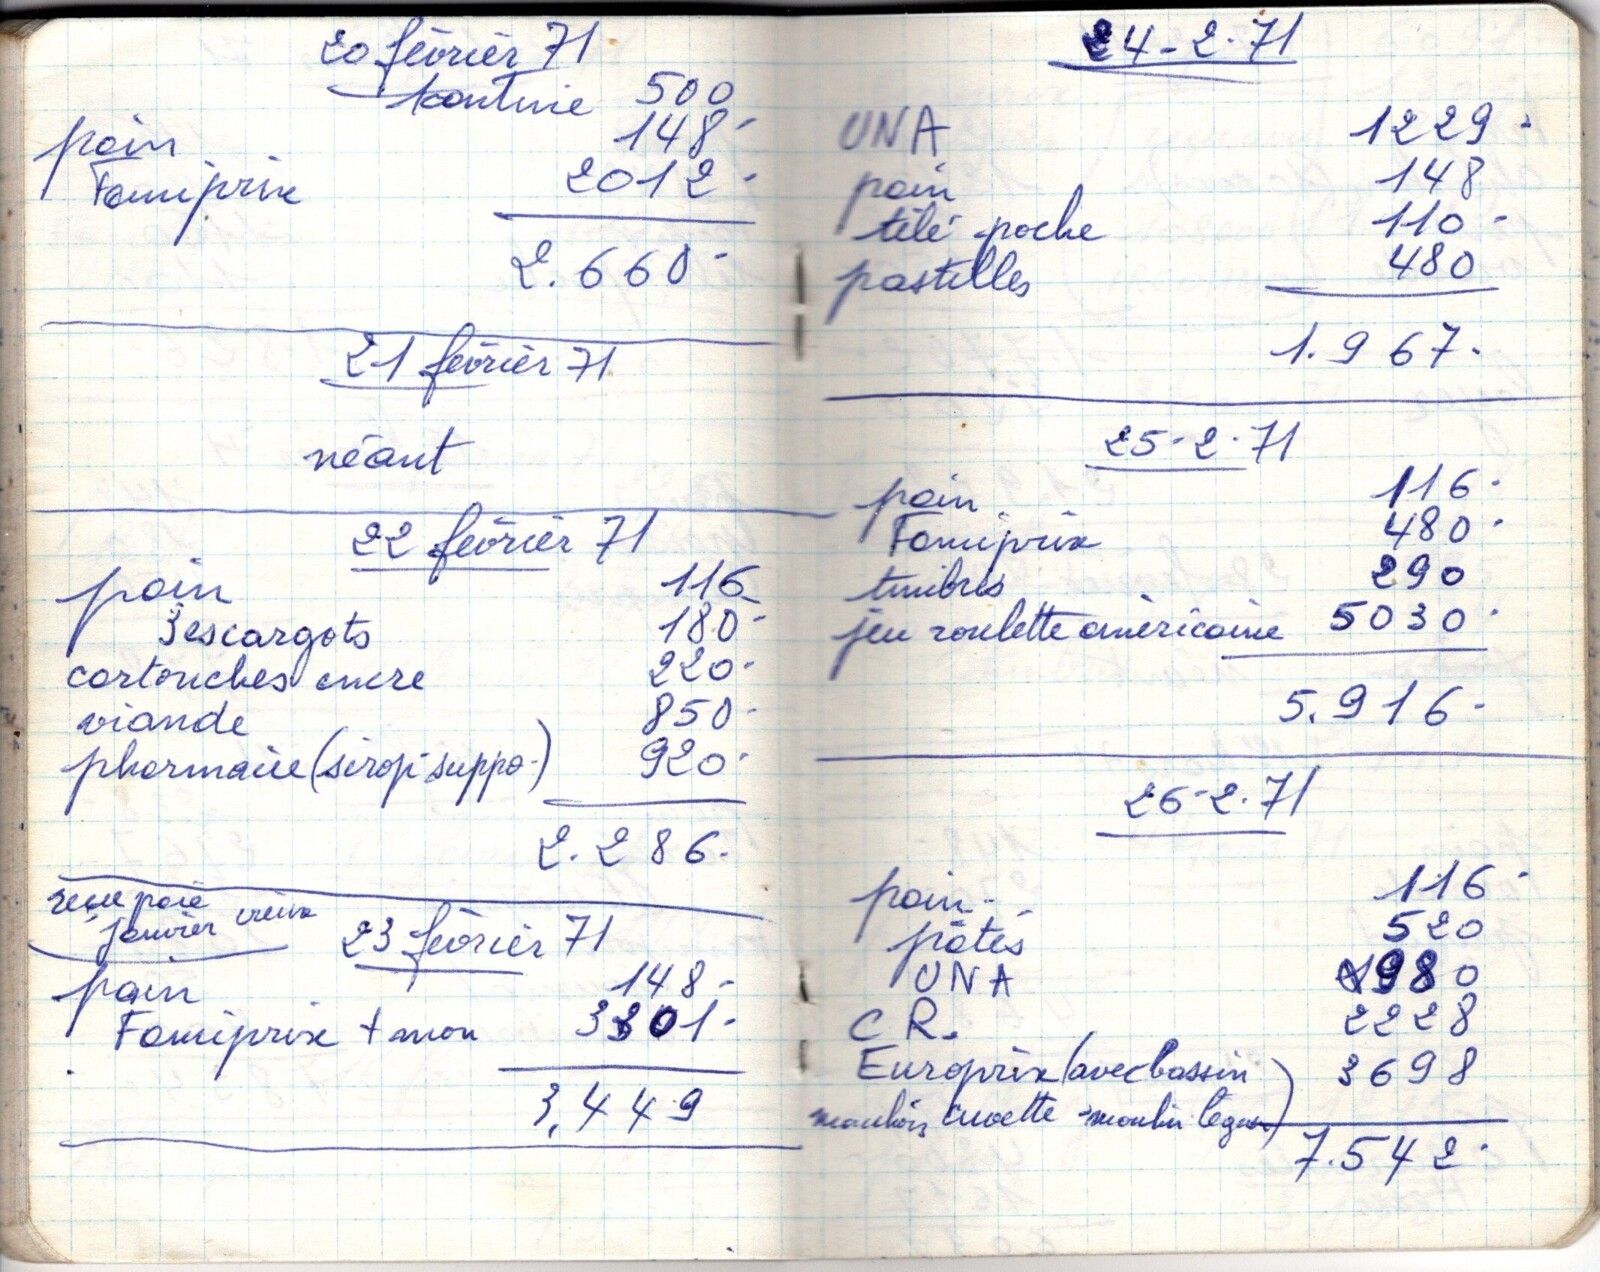 20 février 71
kantine 500
pain 148-
Famiprix 2012-
2.660-
21 février 71
néant
22 février 71
pain 116
3 escargots 180-
cartouches encre 220-
viande 850-
pharmacie (sirop-suppo-) 920-
2.286-
paie
janvier
23 février 71
pain 148-
Famiprix + mon 3301-
3,449
24-2-71
UNA 1229-
pain 148
télé-poche 110-
pastilles 480
1.967-
25-2-71
pain 116-
Famiprix 480-
timbres 290
jeu roulette américaine 5030-
5.916-
26-2-71
pain- 116-
pâtés 520
UNA 980
C R. 2228
Europrix (avec bassin 3698
cuvette - moulin légum)
7.542-